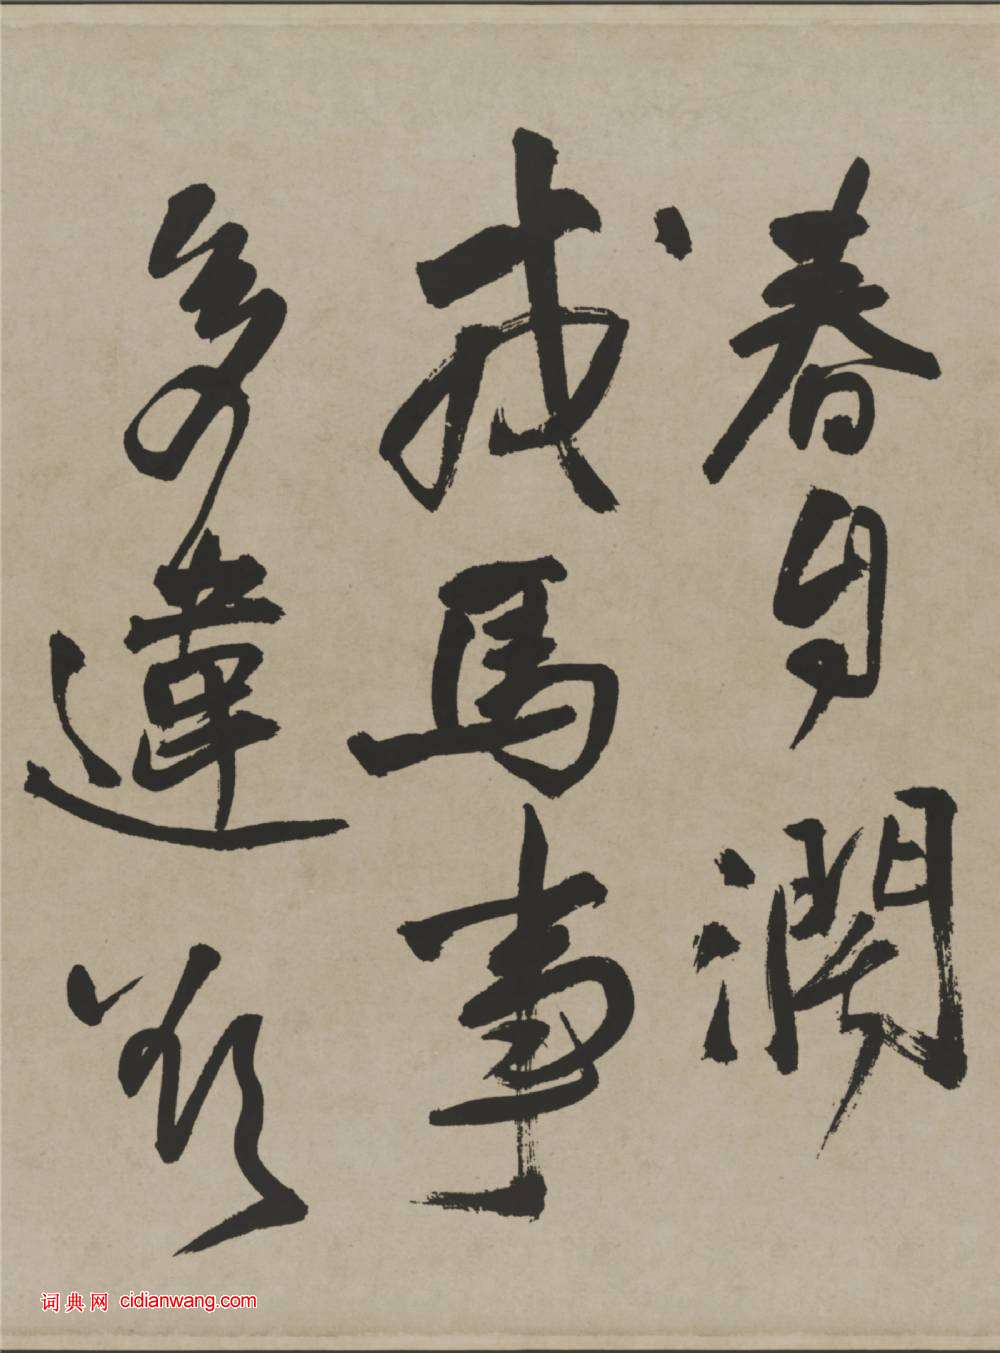 春自濶
戎馬事
多違欲
词典网 cidianwang.com